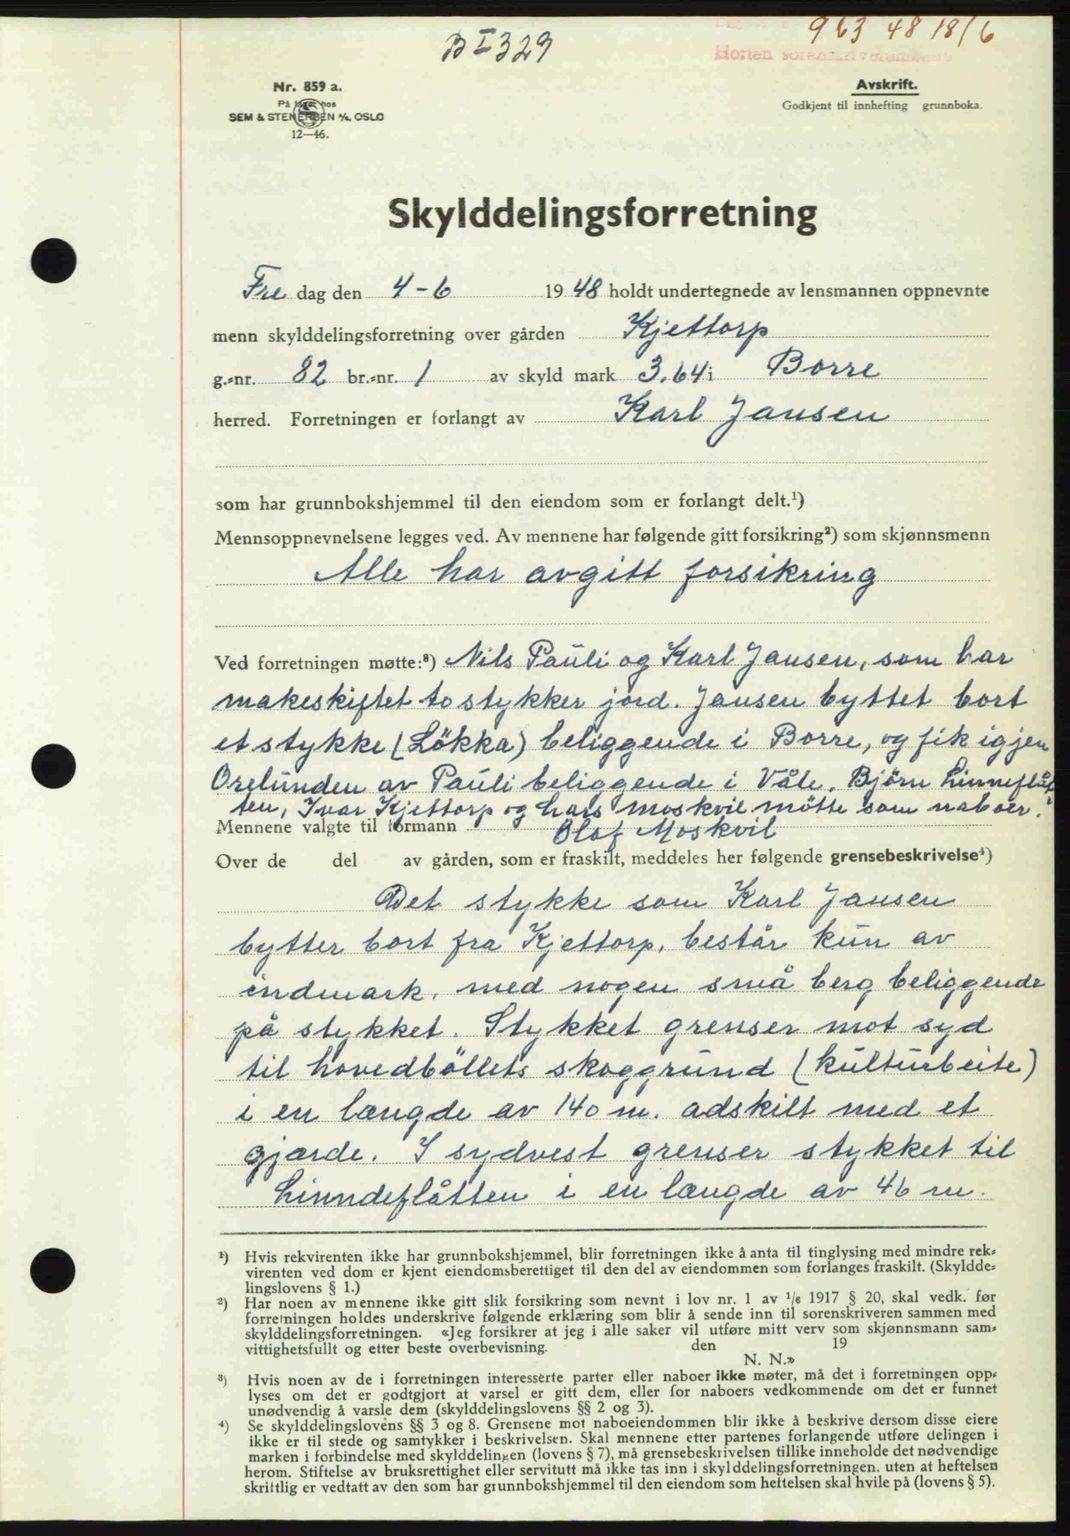 B I 329
963 48 18/6
Horten sorenskriverembete
Nr. 859 a.
På lager hos
SEM & STENERSEN A/S, OSLO
12—46.
Avskrift.
Godkjent til innhefting grunnboka.
Skylddelingsforretning
Fre dag den 4-6 19 48 holdt undertegnede av lensmannen oppnevnte
menn skylddelingsforretning over gården Kjettorp
g.-nr. 82 br.-nr. 1 av skyld mark 3.64 i Borre
herred. Forretningen er forlangt av Karl Jansen
som har grunnbokshjemmel til den eiendom som er forlangt delt.¹)
Mennsoppnevnelsene legges ved. Av mennene har følgende gitt forsikring²) som skjønnsmenn
Alle har avgitt forsikring
Ved forretningen møtte:³) Nils Pauli og Karl Jansen, som har
makeskiftet to stykker jord. Jansen byttet bort
et stykke (Lökka) beliggende i Borre, og fik igjen
Orelunden av Pauli beliggende i Våle. Björn Linneflåt-
ten, Ivar Kjettorp og Lars Moskvil møtte som naboer.
Mennene valgte til formann Olaf Moskvil
Over de del av gården, som er fraskilt, meddeles her følgende grensebeskrivelse⁴)
Det stykke som Karl Jansen
bytter bort fra Kjettorp, består kun av
indmark, med nogen små berg beliggende
på stykket. Stykket grenser mot syd
til hovedböllets skoggrund (kulturbeite)
i en længde av 140 m. adskilt med et
gjærde. I sydvest grenser stykket til
Linndeflåtten i en længde av 46 m.
¹) Hvis rekvirenten ikke har grunnbokshjemmel, blir forretningen ikke å anta til tinglysing med mindre rek-
virenten ved dom er kjent eiendomsberettiget til den del av eiendommen som forlanges fraskilt. (Skyldde-
lingslovens § 1.)
²) Har noen av mennene ikke gitt slik forsikring som nevnt i lov nr. 1 av 1/6 1917 § 20, skal vedk. før
forretningen holdes underskrive følgende erklæring som blir å sende inn til sorenskriveren sammen med
skylddelingsforretningen. «Jeg forsikrer at jeg i alle saker vil utføre mitt verv som skjønnsmann sam-
vittighetsfullt og etter beste overbevisning. den 19
N. N.»
³) Hvis noen av de i forretningen interesserte parter eller naboer ikke møter, må det i forretningen opp-
lyses om det er godtgjort at varsel er gitt dem, eller for naboers vedkommende om det er funnet
unødvendig å varsle dem (skylddelingslovens §§ 2 og 3).
⁴) Se skylddelingslovens §§ 3 og 8. Grensene mot naboeiendommen blir ikke å beskrive dersom disse eiere
ikke er til stede og samtykker i beskrivelsen. Skal mennene etter partenes forlangende utføre delingen i
marken i forbindelse med skylddelingen (lovens § 7), må grensebeskrivelsen tillike inneholde det nødvendige
herom. Stiftelse av bruksrettighet eller servitutt må ikke tas inn i skylddelingsforretningen. uten at heftelsen
skriftlig er vedtatt av den som har grunnbokshjemmel til den eiendom som heftelsen skal hvile på (lovens § 5).